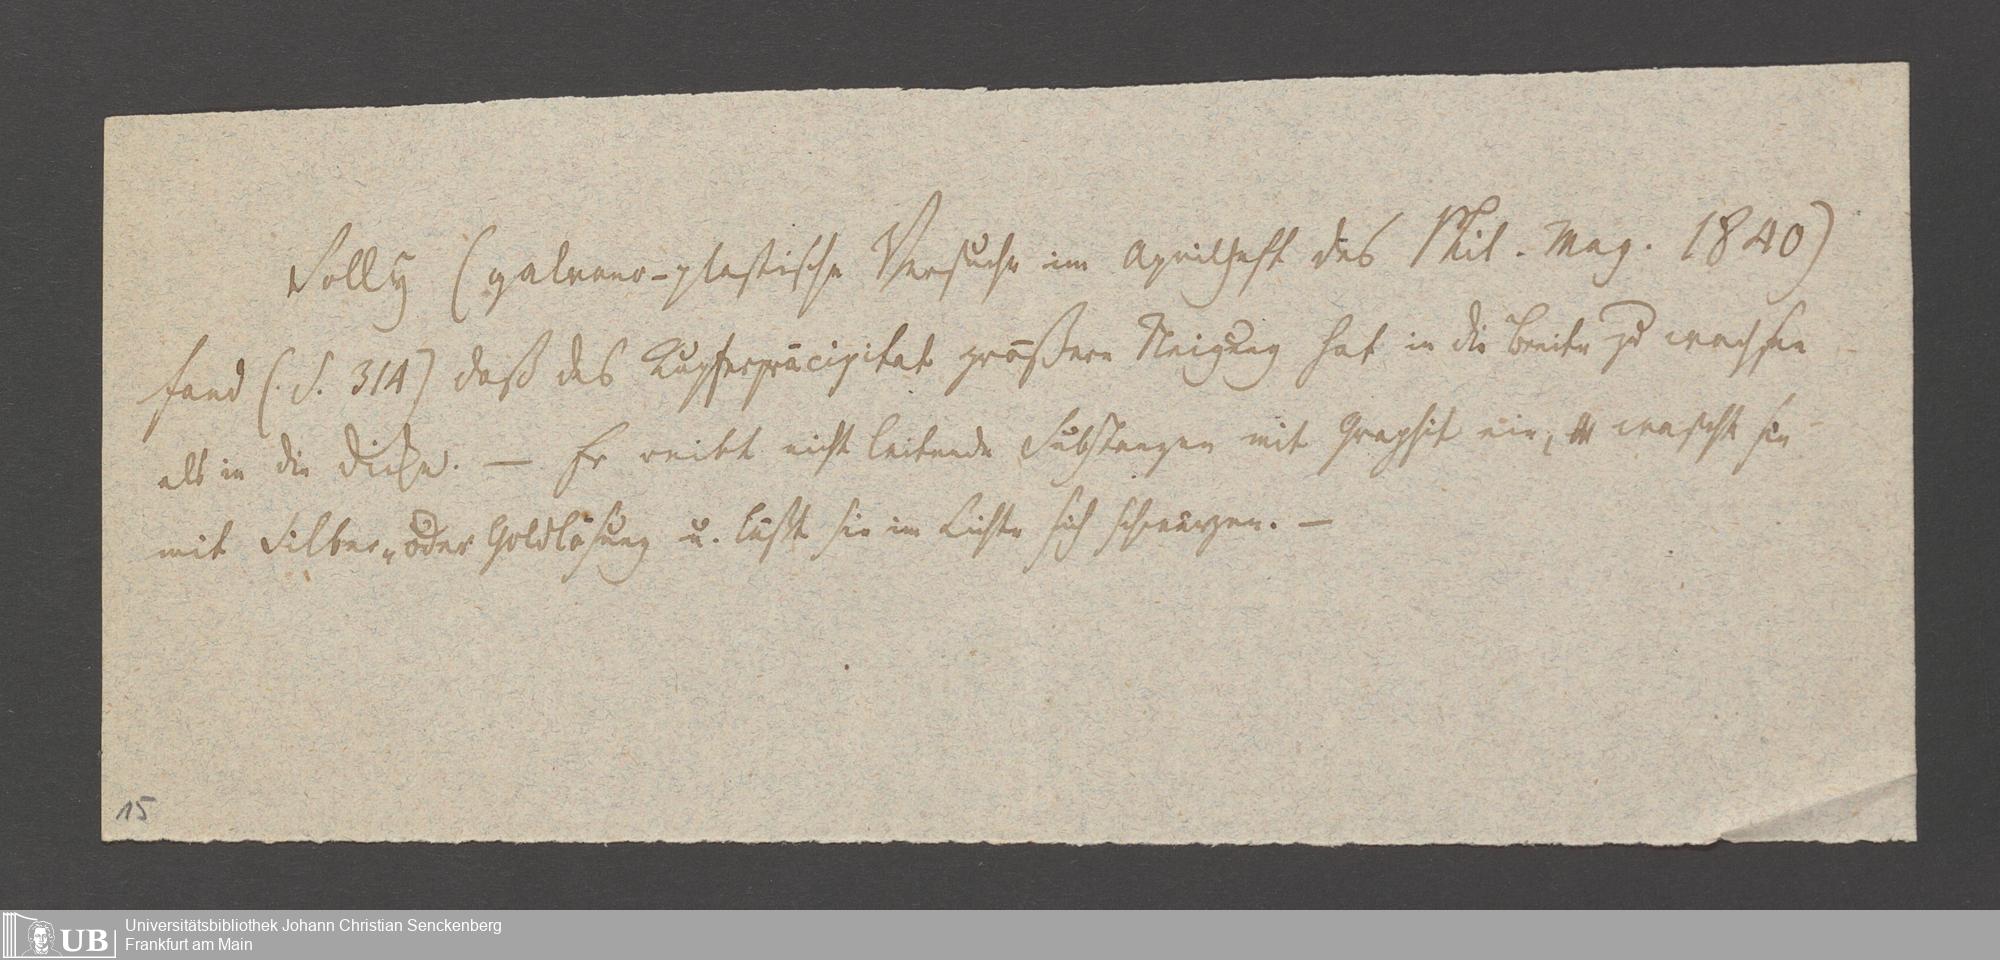 Solly (galvano-plastische Versuche im Aprilheft des Phil. Mag. 1840)
fand (S. 314) daß das Kupferpräcipitat größere Neigung hat in die Breite zu wachsen
als in die Dicke. — Er reibt nicht leitende Substanzen mit Graphit ein, wascht sie
mit Silber- oder Goldlösung u. läßt sie im Lichte sich schwärzen. —
15
UB
Universitätsbibliothek Johann Christian Senckenberg
Frankfurt am Main